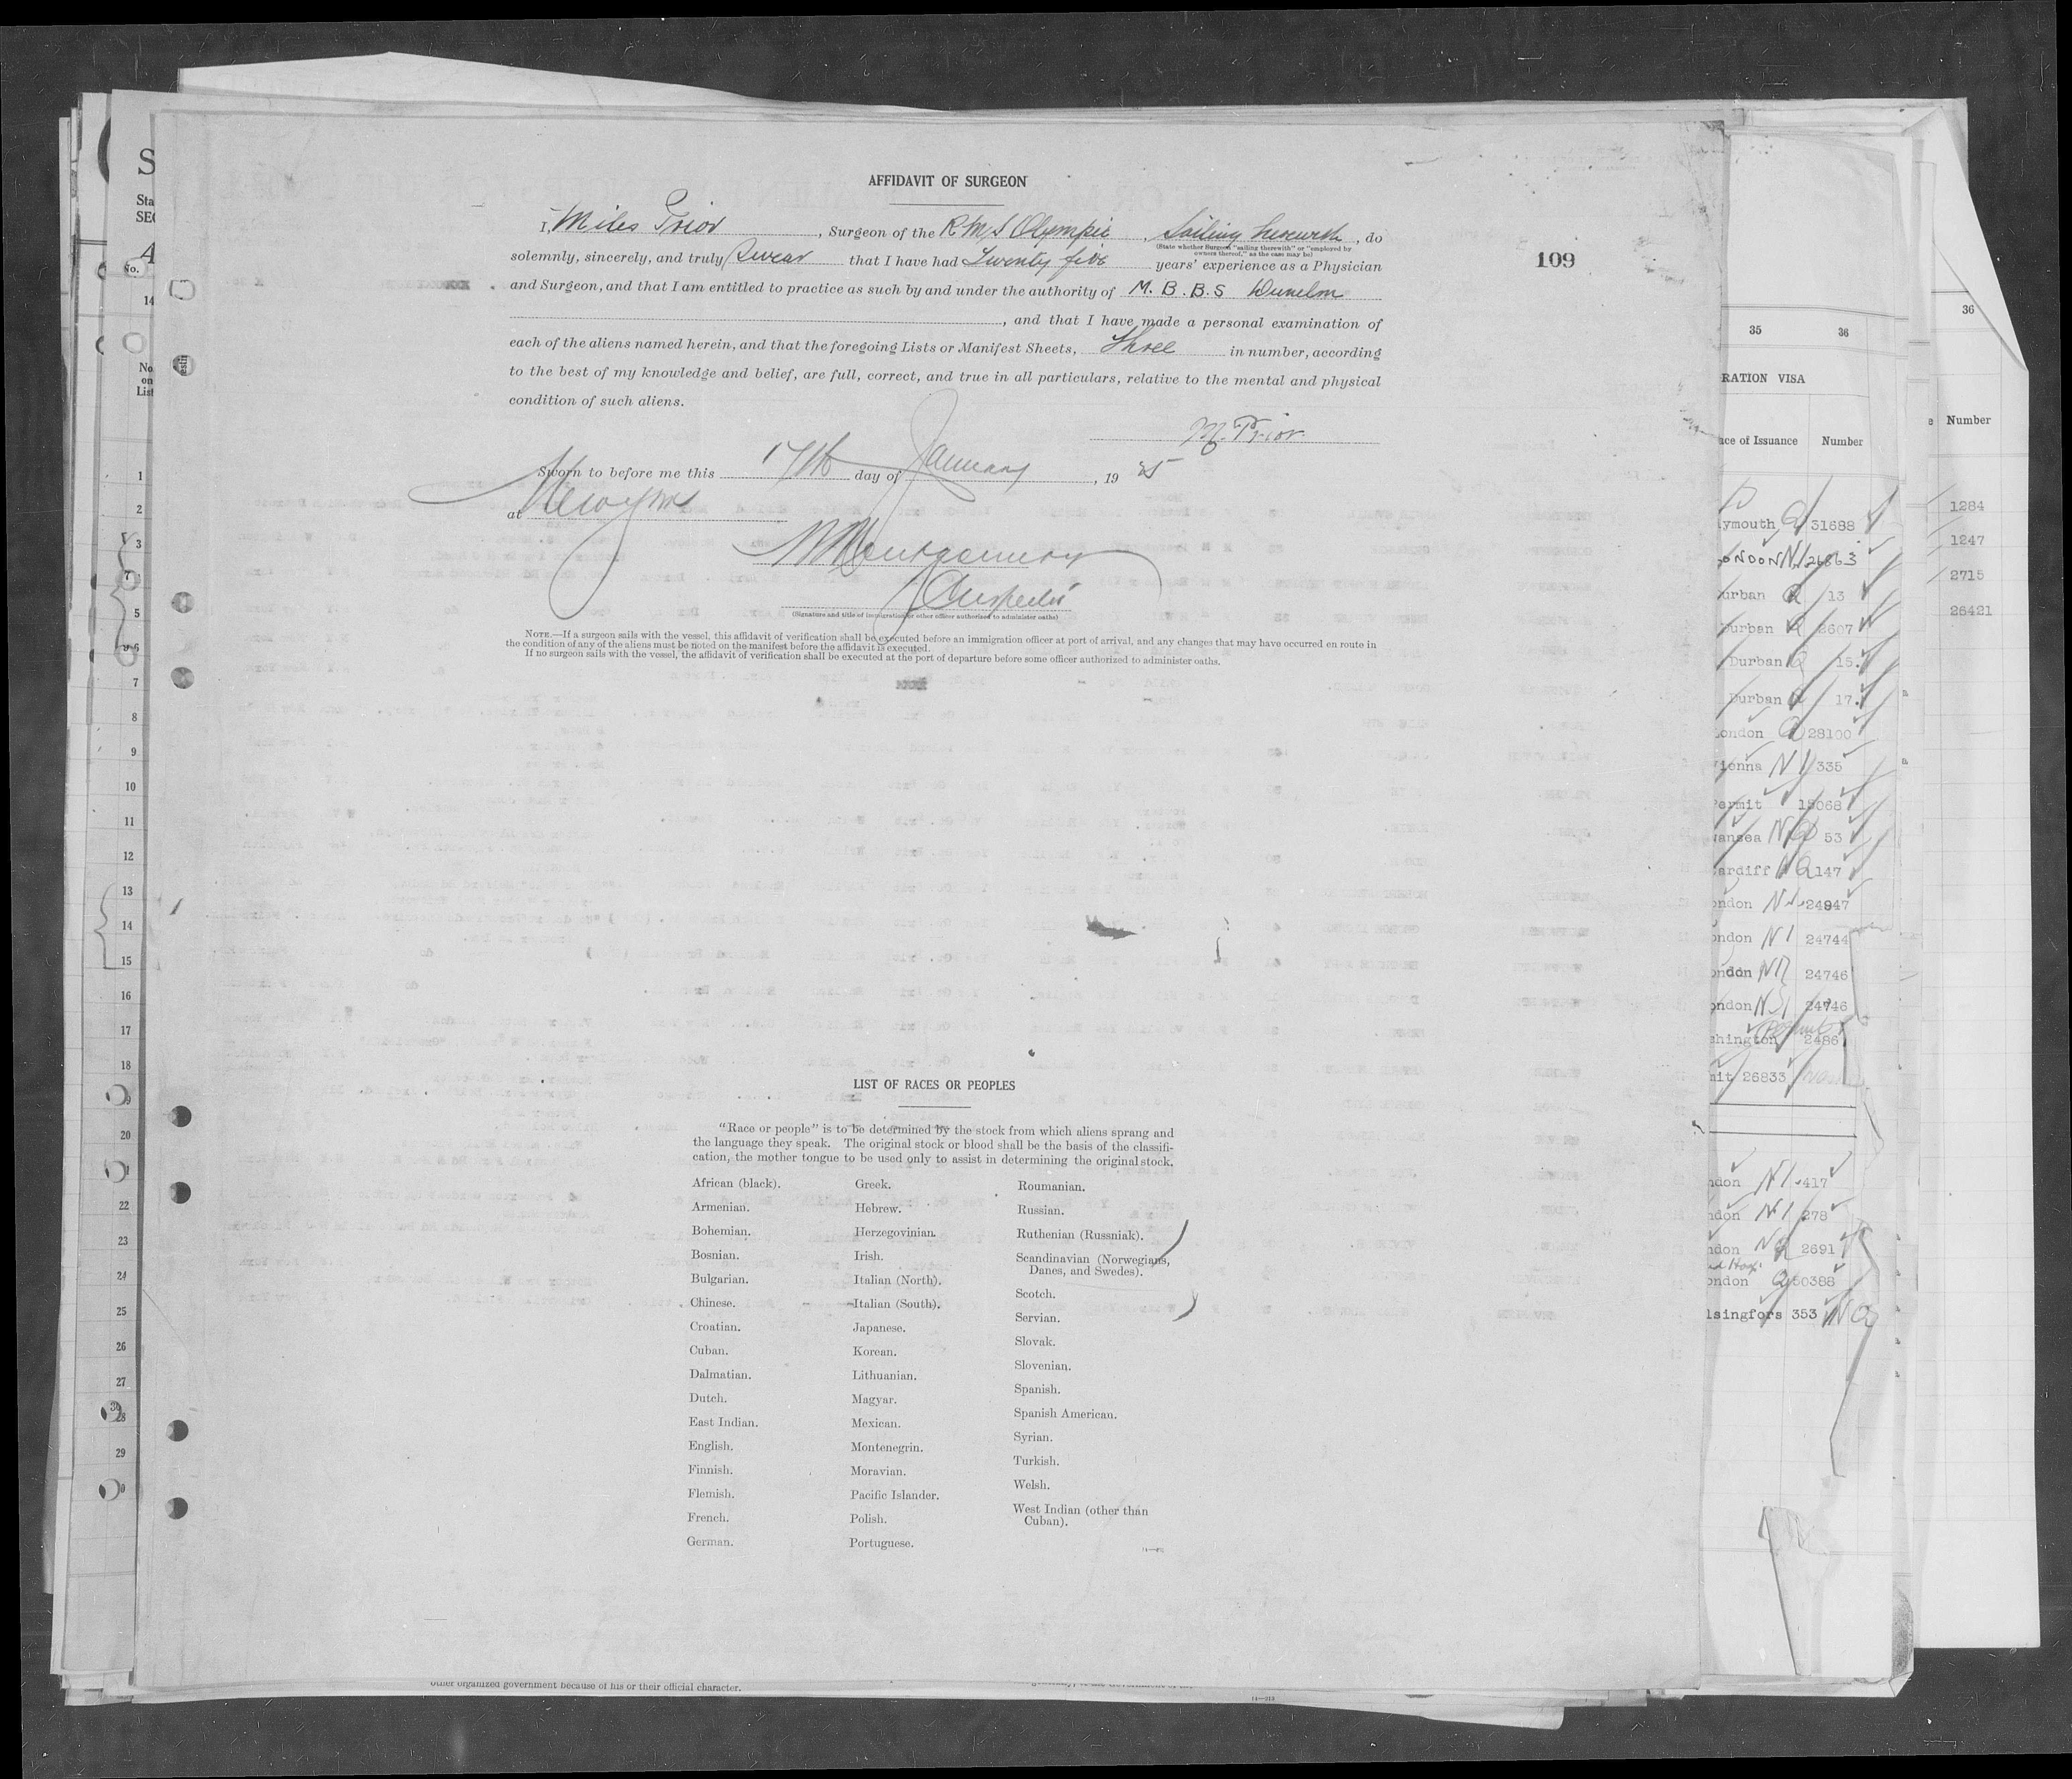 AFFIDAVIT OF SURGEON
109
I, Miles Prior, Surgeon of the R.M.S Olympic, Sailing therewith, do
(State whether Surgeon "sailing therewith" or "employed by
owners thereof," as the case may be)
solemnly, sincerely, and truly Swear that I have had Twenty five years' experience as a Physician
and Surgeon, and that I am entitled to practice as such by and under the authority of M. B. B.S Dunelm
, and that I have made a personal examination of
each of the aliens named herein, and that the foregoing Lists or Manifest Sheets, Three in number, according
to the best of my knowledge and belief, are full, correct, and true in all particulars, relative to the mental and physical
condition of such aliens.
M. Prior.
Sworn to before me this 17th day of January, 1925
at New York
Montgomery
Inspector
(Signature and title of immigration or other officer authorized to administer oaths)
NOTE.—If a surgeon sails with the vessel, this affidavit of verification shall be executed before an immigration officer at port of arrival, and any changes that may have occurred en route in
the condition of any of the aliens must be noted on the manifest before the affidavit is executed.
If no surgeon sails with the vessel, the affidavit of verification shall be executed at the port of departure before some officer authorized to administer oaths.
LIST OF RACES OR PEOPLES
"Race or people" is to be determined by the stock from which aliens sprang and
the language they speak. The original stock or blood shall be the basis of the classifi-
cation, the mother tongue to be used only to assist in determining the original stock.
African (black).
Armenian.
Bohemian.
Bosnian.
Bulgarian.
Chinese.
Croatian.
Cuban.
Dalmatian.
Dutch.
East Indian.
English.
Finnish.
Flemish.
French.
German.
Greek.
Hebrew.
Herzegovinian.
Irish.
Italian (North).
Italian (South).
Japanese.
Korean.
Lithuanian.
Magyar.
Mexican.
Montenegrin.
Moravian.
Pacific Islander.
Polish.
Portuguese.
Roumanian.
Russian.
Ruthenian (Russniak).
Scandinavian (Norwegians,
Danes, and Swedes).
Scotch.
Servian.
Slovak.
Slovenian.
Spanish.
Spanish American.
Syrian.
Turkish.
Welsh.
West Indian (other than
Cuban).
other organized government because of his or their official character.
35 36
RATION VISA
ace of Issuance Number
ymouth 31688
ONDON 26863
urban 13
Durban 2607
Durban 15.
Durban 17.
London 28100
Vienna 335
Permit 18068
wansea 53
Cardiff 147
ondon 24947
ondon 24744
ondon 24746
ondon 24746
shington 2486
mit 26833
ndon 417
ndon 278
ndon 2691
ondon 50388
lsingfors 353
36
Number
1284
1247
2715
26421